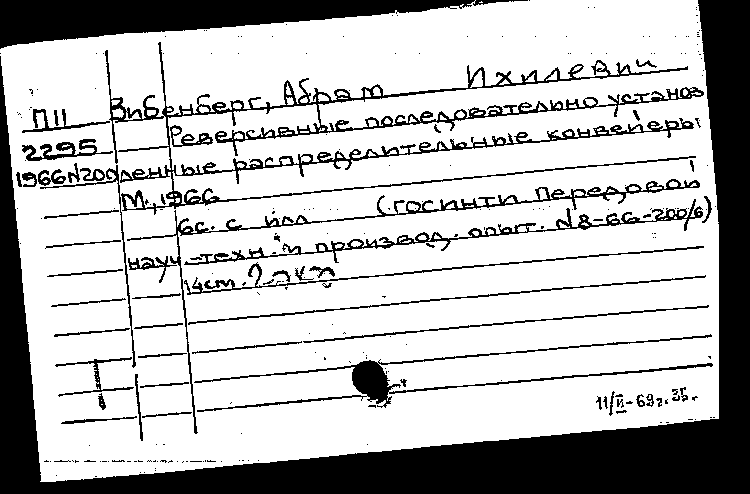 Зибенберг, Абрам Ихилевич
П11
2295
1966 N200
Реверсивные последовательно установ
ленные распределительные конвейеры
М., 1966
6с. с илл (ГОСИНТИ Передовой
науч.-техн. и производ. опыт. N 8-66-200/6)
14см.
11/II-69г.